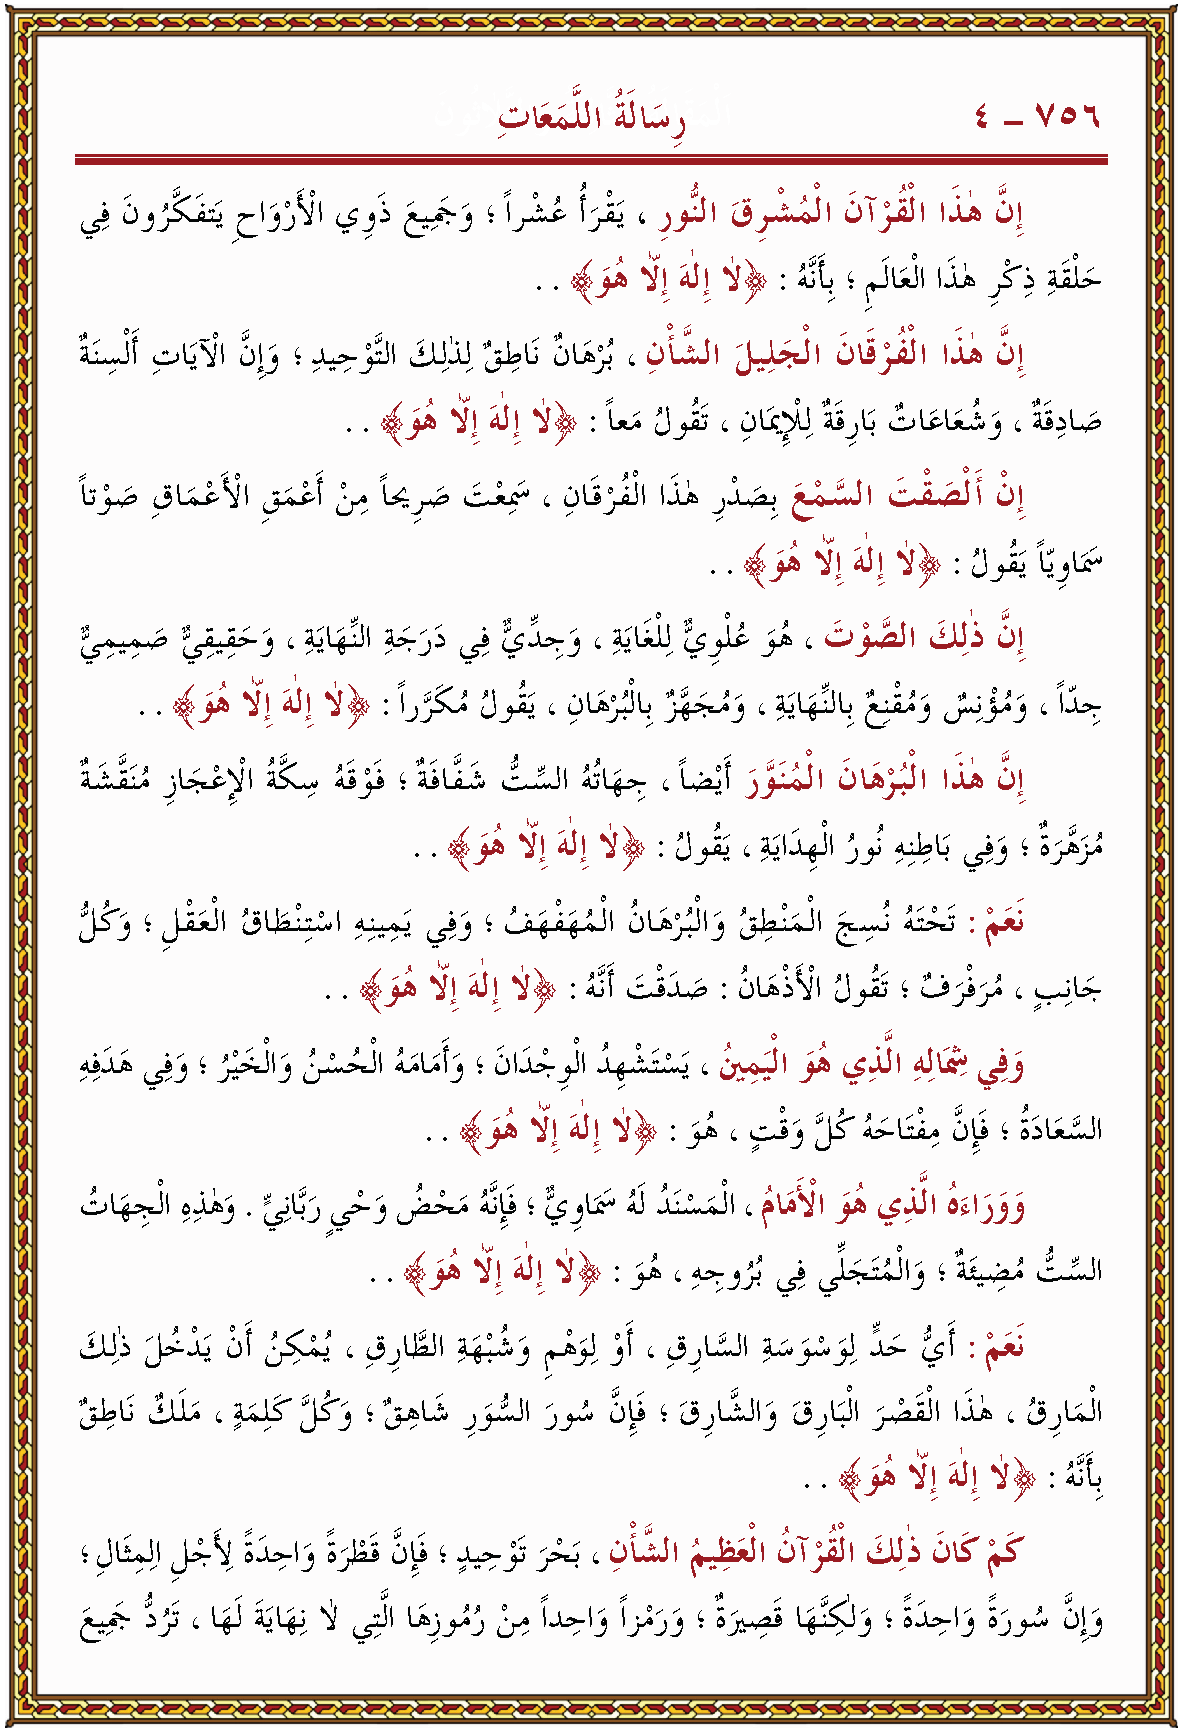 ٧٥٦ ــ ٤ رِسَالَةُ اللَّمَعَاتِ
إِنَّ هٰذَا الْقُرْآنَ الْمُشْرِقَ النُّورِ ، يَقْرَأُ عُشْراً ؛ وَجَمِيعَ ذَوِي الْأَرْوَاحِ يَتَفَكَّرُونَ فِي
حَلْقَةِ ذِكْرِ هٰذَا الْعَالَمِ ؛ بِأَنَّهُ : ﴿لَا إِلٰهَ إِلَّا هُوَ﴾ . .
إِنَّ هٰذَا الْفُرْقَانَ الْجَلِيلَ الشَّأْنِ ، بُرْهَانٌ نَاطِقٌ لِذٰلِكَ التَّوْحِيدِ ؛ وَإِنَّ الْآيَاتِ أَلْسِنَةٌ
صَادِقَةٌ ، وَشُعَاعَاتٌ بَارِقَةٌ لِلْإِيمَانِ ، تَقُولُ مَعاً : ﴿لَا إِلٰهَ إِلَّا هُوَ﴾ . .
إِنْ أَلْصَقْتَ السَّمْعَ بِصَدْرِ هٰذَا الْفُرْقَانِ ، سَمِعْتَ صَرِيحاً مِنْ أَعْمَقِ الْأَعْمَاقِ صَوْتاً
سَمَاوِيّاً يَقُولُ : ﴿لَا إِلٰهَ إِلَّا هُوَ﴾ . .
إِنَّ ذٰلِكَ الصَّوْتَ ، هُوَ عُلْوِيٌّ لِلْغَايَةِ ، وَجِدِّيٌّ فِي دَرَجَةِ النِّهَايَةِ ، وَحَقِيقِيٌّ صَمِيمِيٌّ
جِدّاً ، وَمُؤْنِسٌ وَمُقْنِعٌ بِالنِّهَايَةِ ، وَمُجَهَّزٌ بِالْبُرْهَانِ ، يَقُولُ مُكَرَّراً : ﴿لَا إِلٰهَ إِلَّا هُوَ﴾ . .
إِنَّ هٰذَا الْبُرْهَانَ الْمُنَوَّرَ أَيْضاً ، جِهَاتُهُ السِّتُّ شَفَّافَةٌ ؛ فَوْقَهُ سِكَّةُ الْإِعْجَازِ مُنَقَّشَةٌ
مُزَهَّرَةٌ ؛ وَفِي بَاطِنِهِ نُورُ الْهِدَايَةِ ، يَقُولُ : ﴿لَا إِلٰهَ إِلَّا هُوَ﴾ . .
نَعَمْ : تَحْتَهُ نُسِجَ الْمَنْطِقُ وَالْبُرْهَانُ الْمُهَفْهَفُ ؛ وَفِي يَمِينِهِ اسْتِنْطَاقُ الْعَقْلِ ؛ وَكُلُّ
جَانِبٍ ، مُرَفْرَفٌ ؛ تَقُولُ الْأَذْهَانُ : صَدَقْتَ أَنَّهُ : ﴿لَا إِلٰهَ إِلَّا هُوَ﴾ . .
وَفِي شِمَالِهِ الَّذِي هُوَ الْيَمِينُ ، يَسْتَشْهِدُ الْوِجْدَانَ ؛ وَأَمَامَهُ الْحُسْنُ وَالْخَيْرُ ؛ وَفِي هَدَفِهِ
السَّعَادَةُ ؛ فَإِنَّ مِفْتَاحَهُ كُلَّ وَقْتٍ ، هُوَ : ﴿لَا إِلٰهَ إِلَّا هُوَ﴾ . .
وَوَرَاءَهُ الَّذِي هُوَ الْأَمَامُ ، الْمَسْنَدُ لَهُ سَمَاوِيٌّ ؛ فَإِنَّهُ مَحْضُ وَحْيٍ رَبَّانِيٍّ . وَهٰذِهِ الْجِهَاتُ
السِّتُّ مُضِيئَةٌ ؛ وَالْمُتَجَلِّي فِي بُرُوجِهِ ، هُوَ : ﴿لَا إِلٰهَ إِلَّا هُوَ﴾ . .
نَعَمْ : أَيُّ حَدٍّ لِوَسْوَسَةِ السَّارِقِ ، أَوْ لِوَهْمِ وَشُبْهَةِ الطَّارِقِ ، يُمْكِنُ أَنْ يَدْخُلَ ذٰلِكَ
الْمَارِقُ ، هٰذَا الْقَصْرَ الْبَارِقَ وَالشَّارِقَ ؛ فَإِنَّ سُورَ السُّوَرِ شَاهِقٌ ؛ وَكُلَّ كَلِمَةٍ ، مَلَكٌ نَاطِقٌ
بِأَنَّهُ : ﴿لَا إِلٰهَ إِلَّا هُوَ﴾ . .
كَمْ كَانَ ذٰلِكَ الْقُرْآنُ الْعَظِيمُ الشَّأْنِ ، بَحْرَ تَوْحِيدٍ ؛ فَإِنَّ قَطْرَةً وَاحِدَةً لِأَجْلِ الْمِثَالِ ؛
وَإِنَّ سُورَةً وَاحِدَةً ؛ وَلٰكِنَّهَا قَصِيرَةٌ ؛ وَرَمْزاً وَاحِداً مِنْ رُمُوزِهَا الَّتِي لَا نِهَايَةَ لَهَا ، تَرُدُّ جَمِيعَ